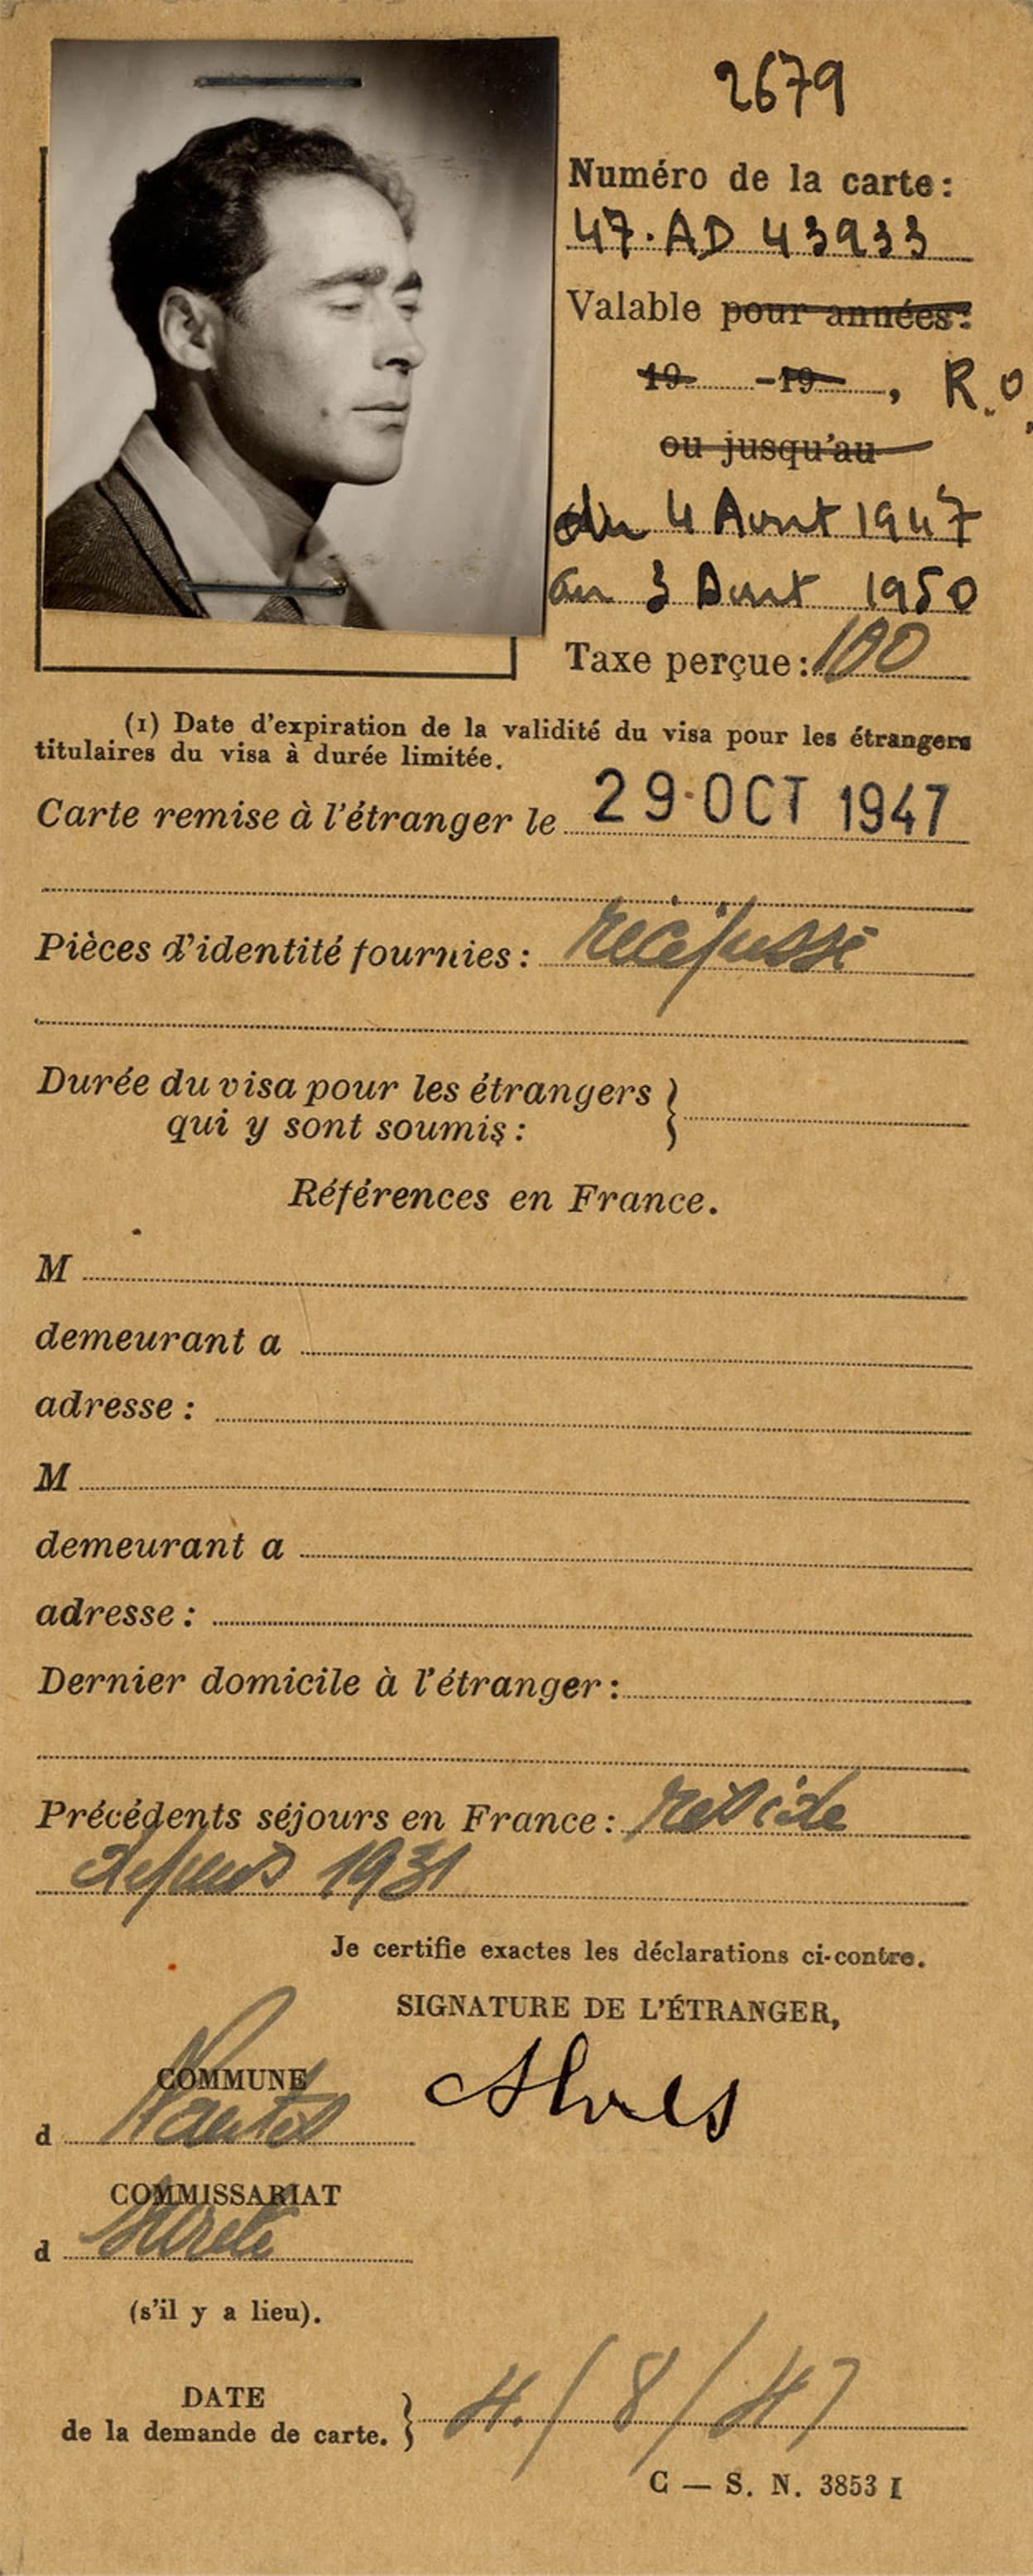 2679
Numéro de la carte:
47.AD 43933
Valable pour années:
19 -19 , R.O.
ou jusqu'au
du 4 Aout 1947
au 3 Aout 1950
Taxe perçue: 100
(1) Date d'expiration de la validité du visa pour les étrangers
titulaires du visa à durée limitée.
Carte remise à l'étranger le 29 OCT 1947
Pièces d'identité fournies: récépissé
Durée du visa pour les étrangers }
qui y sont soumis:
Références en France.
M
demeurant a
adresse:
M
demeurant a
adresse:
Dernier domicile à l'étranger:
Précédents séjours en France: réside
depuis 1931
Je certifie exactes les déclarations ci-contre.
SIGNATURE DE L'ÉTRANGER,
COMMUNE
d Nantes
COMMISSARIAT
d Sureté
(s'il y a lieu).
DATE
de la demande de carte. } 4/8/47
C — S. N. 3853 I